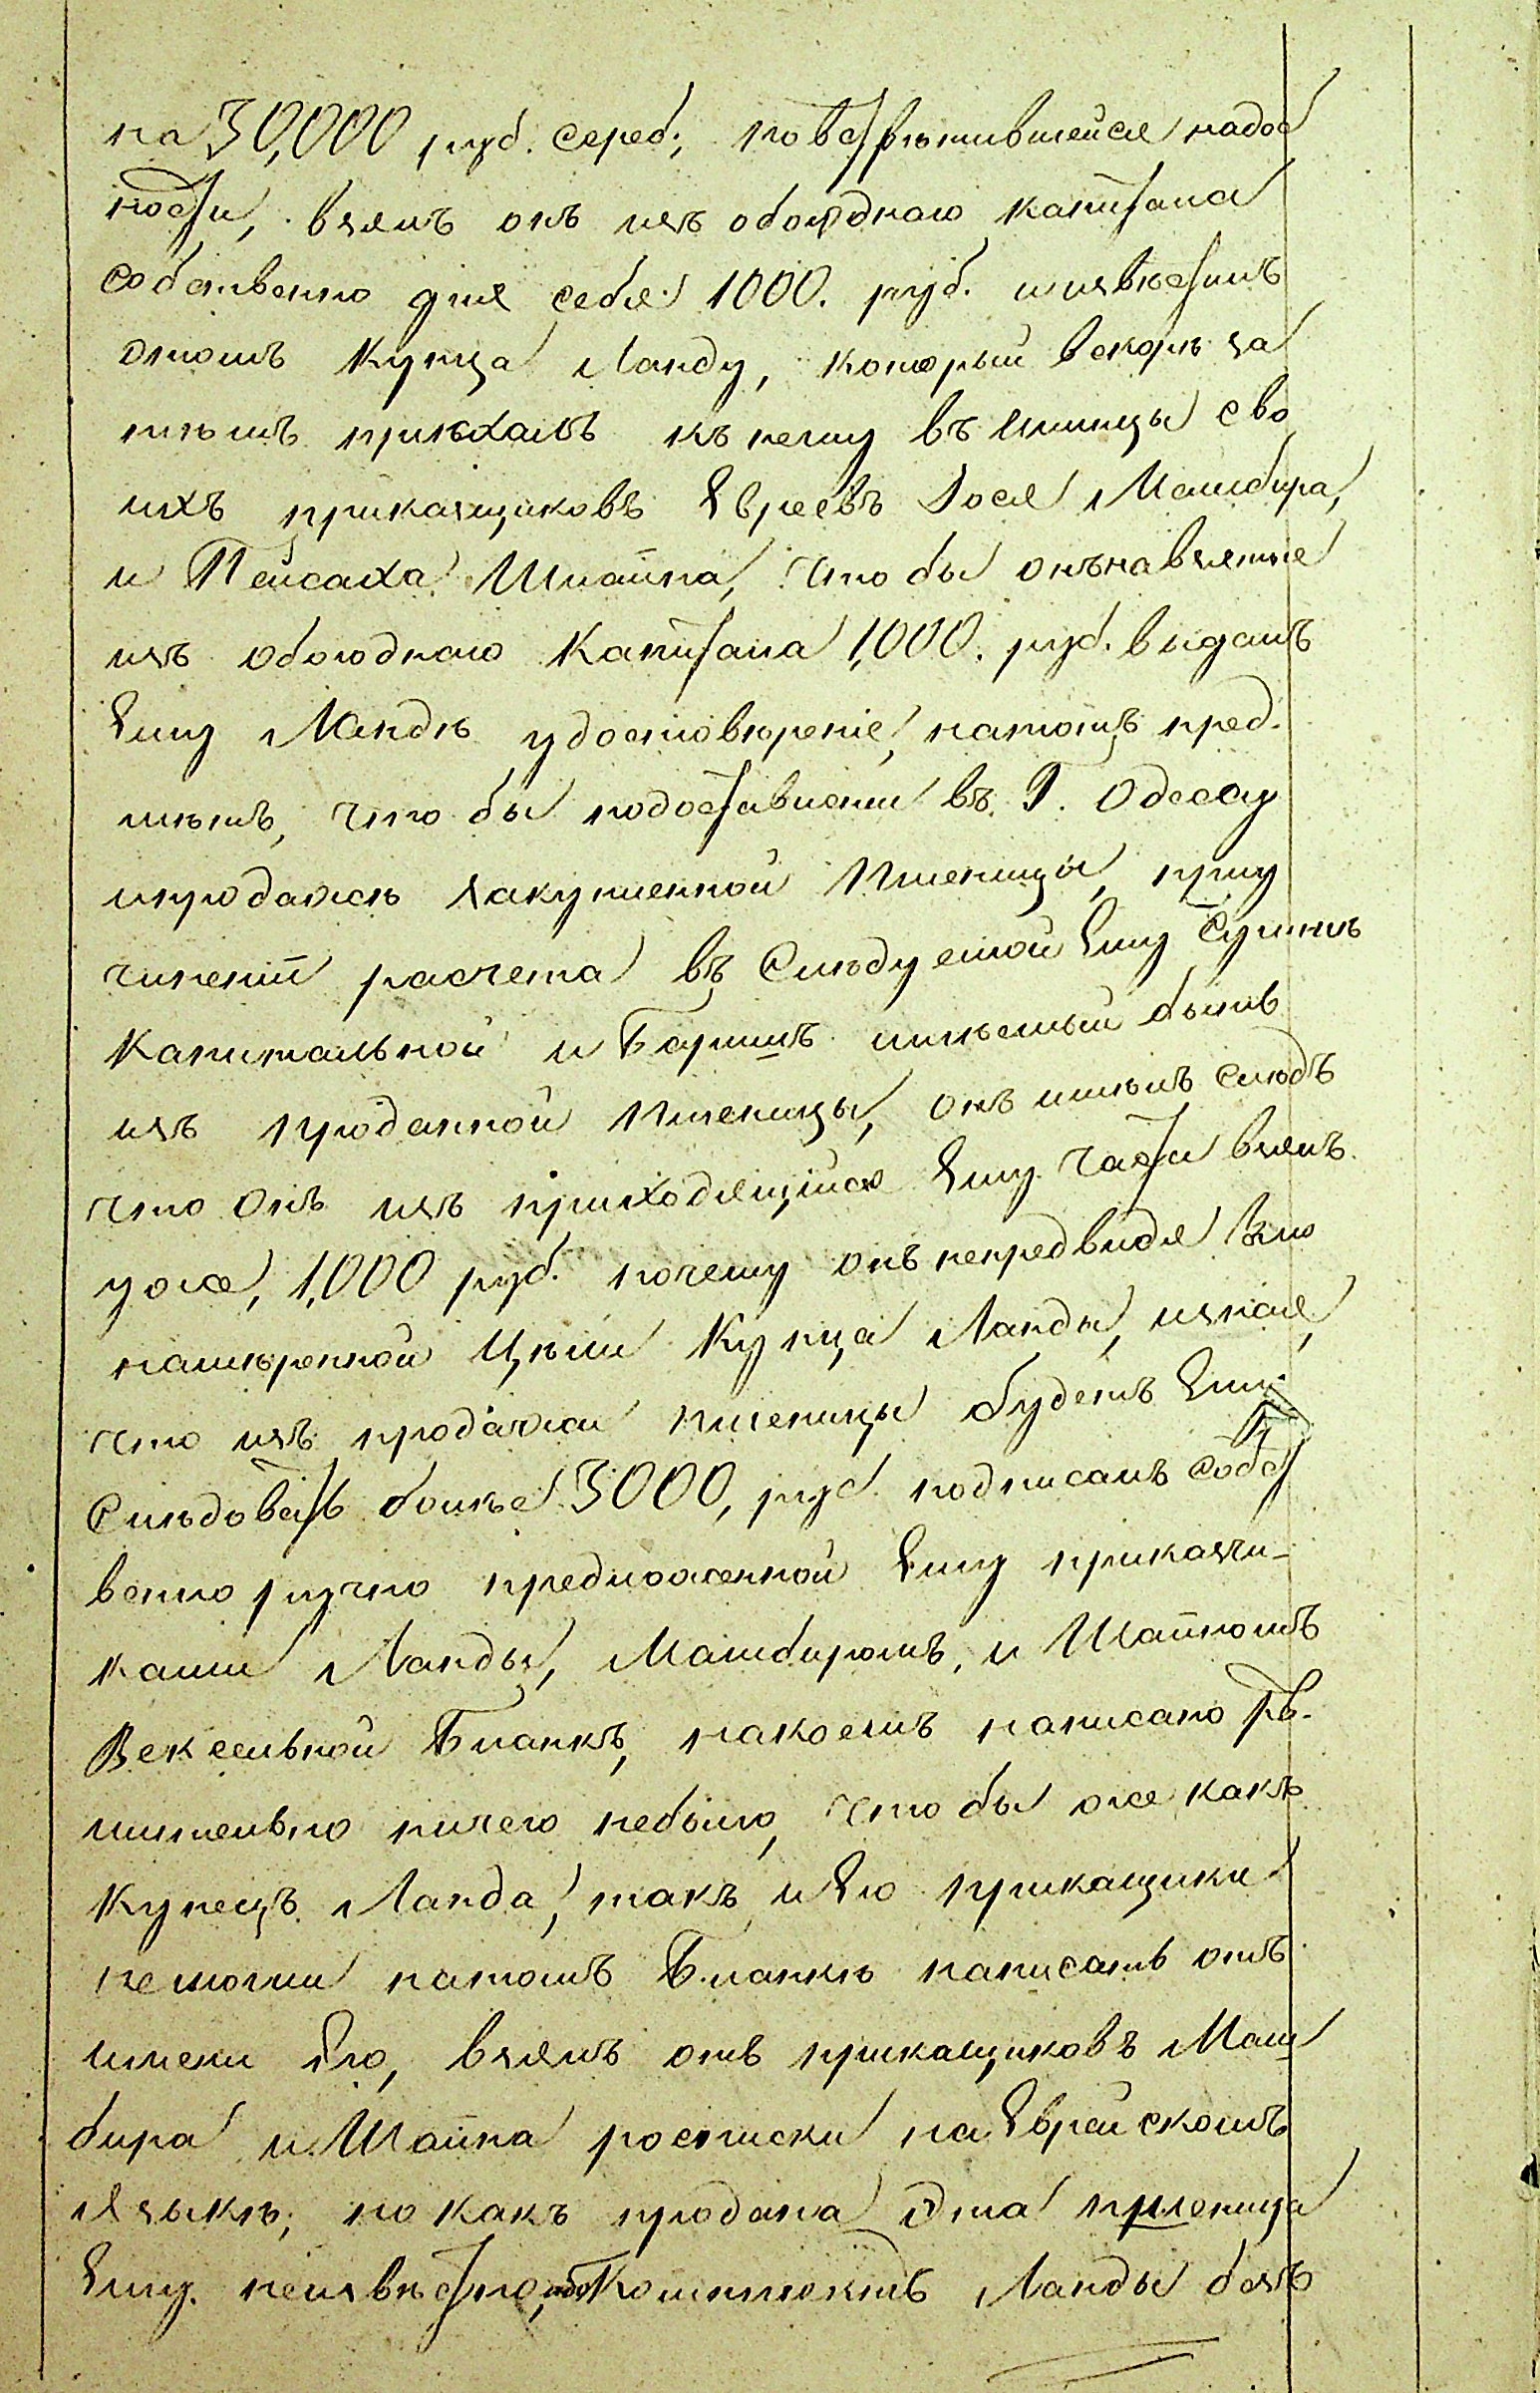 на 30,000 руб. сереб; по встрѣтившейся надоб
ности, взялъ онъ изъ обоюднаго капитала
собственно для себя 1000. руб. и извѣстилъ
отомъ Купца Ланду, который вскорѣ за
тѣмъ приѣхалъ къ нему въ сво
ихъ прикащиковъ Евреевъ Іося Машбира,
и Пейсаха Шпайна, что бы онъ на взятые
изъ обоюднаго Капитала 1,000. руб. выдалъ
Ему Ландѣ удостовѣреніе, на тотъ пред-
мѣтъ, что бы по доставленіи въ Г. Одессу
и продажѣ закупленной Пшеницы, при у
чиненіи расчета въ Слѣдуемой Ему Суммѣ
Капитальной и Барышъ имѣемый быть
изъ проданной Пшеницы, онъ имѣлъ Слѣдъ
что Онъ изъ приходящійся Ему части взялъ
уже, 1,000 руб. почему онъ непредвидя Зло
намѣренной Цѣли Купца Ланды, и зная,
что изъ продажи Пшеницы будетъ Ему
Слѣдовать болѣе 3000, руб. подписалъ Собст
венно ручно предложенной Ему приказчи-
ками Ланды, Машбиромъ, и Шпайномъ
Вексельной Бланкъ, на коемъ написано рѣ-
шительно ничего небыло, что бы же какъ
Купецъ Ланда, такъ и Его прикащики
немогли на томъ Бланкѣ написать отъ
имени Его, взялъ отъ прикащиковъ Маш
бира и Шпайна росписки на Еврейскомъ
Языкѣ; но какъ продана Эта пшеница
Ему неизвѣстно, Ланды безъ